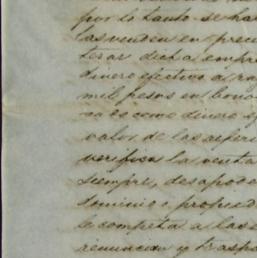 por lo tanto se ha
las venden en preci
terar dicha empre
dinero efectivo a ra
mil pesos en bono
va es como dinero
valor de las referi
verifica la venta
siempre, desapode
dominio o propied
le competa a las
renuncian y traspa